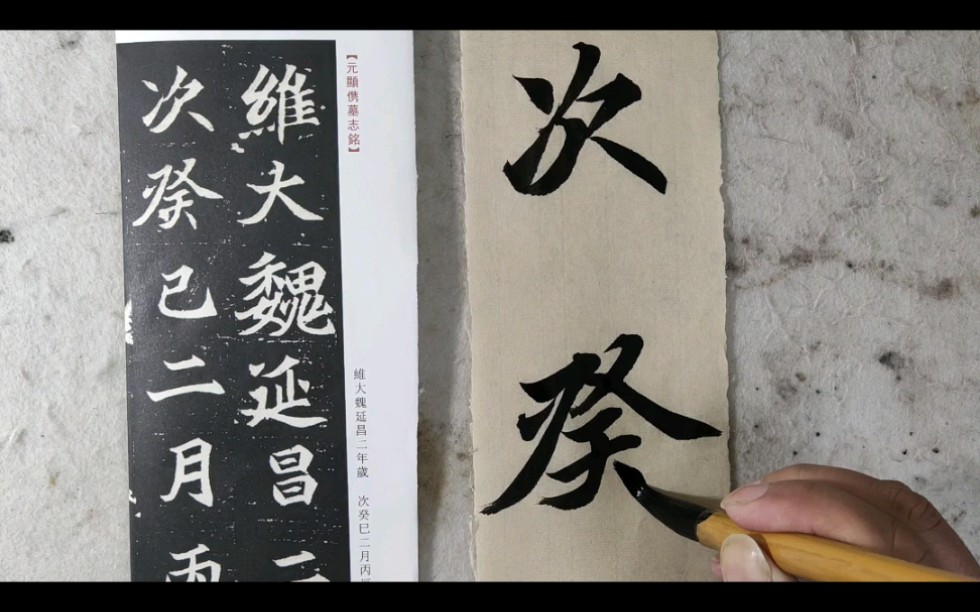 【元顯儁墓志銘】
維大魏延昌二年歲 次癸巳二月丙
維大魏延昌二
次癸巳二月丙
次癸